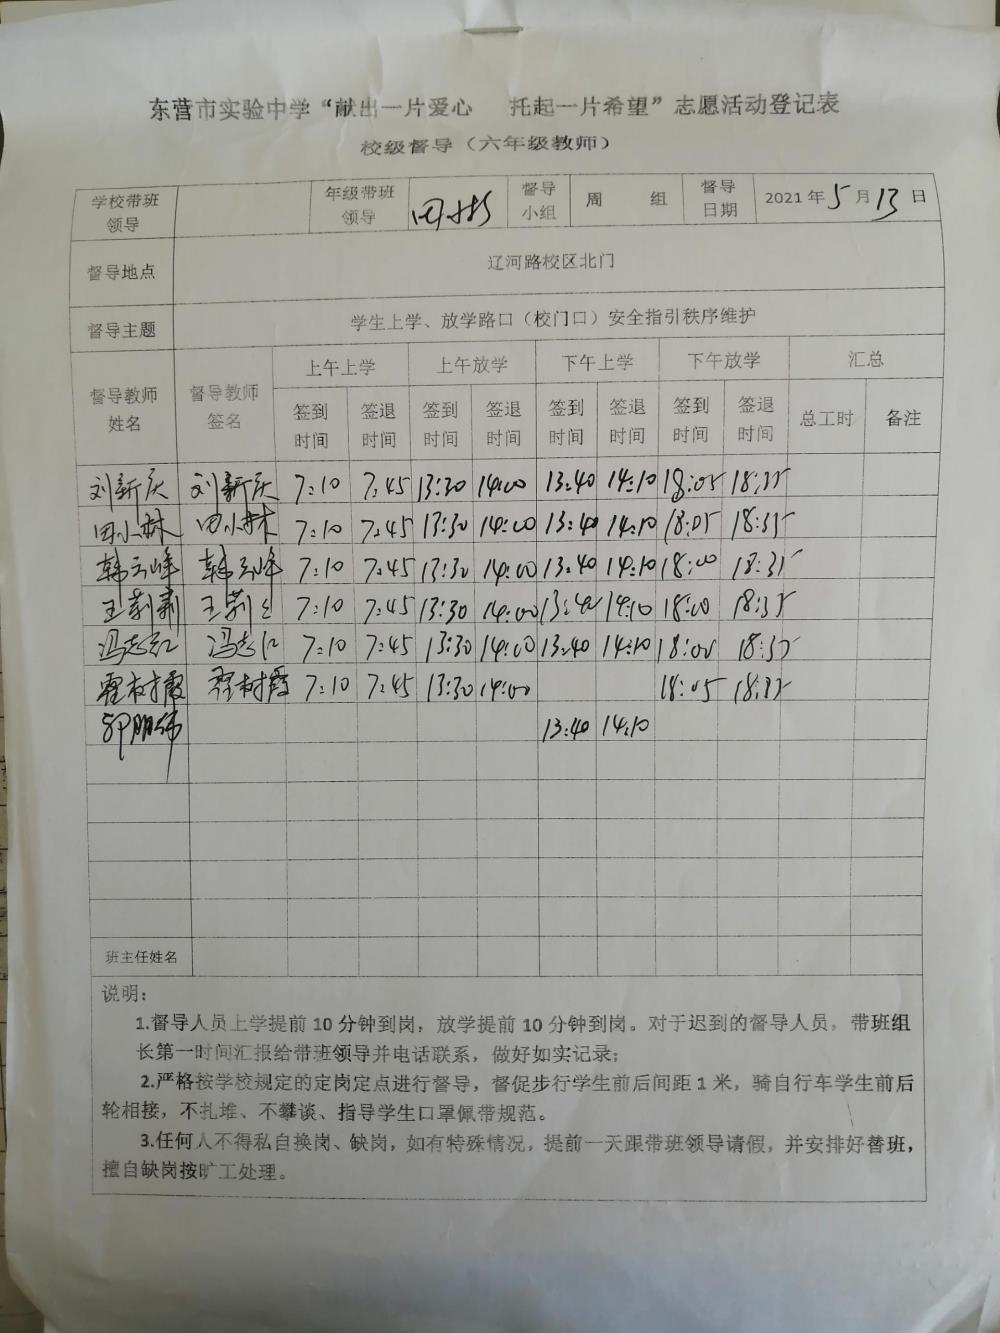 东营市实验中学“献出一片爱心 托起一片希望”志愿活动登记表
校级督导（六年级教师）
学校带班领导 年级带班领导 督导小组 周 组 督导日期 2021年5月13日
督导地点 辽河路校区北门
督导主题 学生上学、放学路口（校门口）安全指引秩序维护
督导教师姓名 督导教师签名 上午上学 上午放学 下午上学 下午放学 汇总
签到时间 签退时间 签到时间 签退时间 签到时间 签退时间 签到时间 签退时间 总工时 备注
刘新庆 刘新庆 7:10 7:45 13:30 14:00 13:40 14:10 18:05 18:35
田小林 田小林 7:10 7:45 13:30 14:00 13:40 14:10 18:05 18:35
韩云峰 韩云峰 7:10 7:45 13:30 14:00 13:40 14:10 18:00 18:35
王莉 王莉 7:10 7:45 13:30 14:00 13:40 14:10 18:00 18:35
冯志红 冯志红 7:10 7:45 13:30 14:00 13:40 14:10 18:00 18:35
霍树霞 霍树霞 7:10 7:45 13:30 14:00 18:05 18:35
13:40 14:10
班主任姓名
说明：
1.督导人员上学提前10分钟到岗，放学提前10分钟到岗。对于迟到的督导人员，带班组
长第一时间汇报给带班领导并电话联系，做好如实记录；
2.严格按学校规定的定岗定点进行督导，督促步行学生前后间距1米，骑自行车学生前后
轮相接，不扎堆、不攀谈、指导学生口罩佩带规范。
3.任何人不得私自换岗、缺岗，如有特殊情况，提前一天跟带班领导请假，并安排好替班，
擅自缺岗按旷工处理。